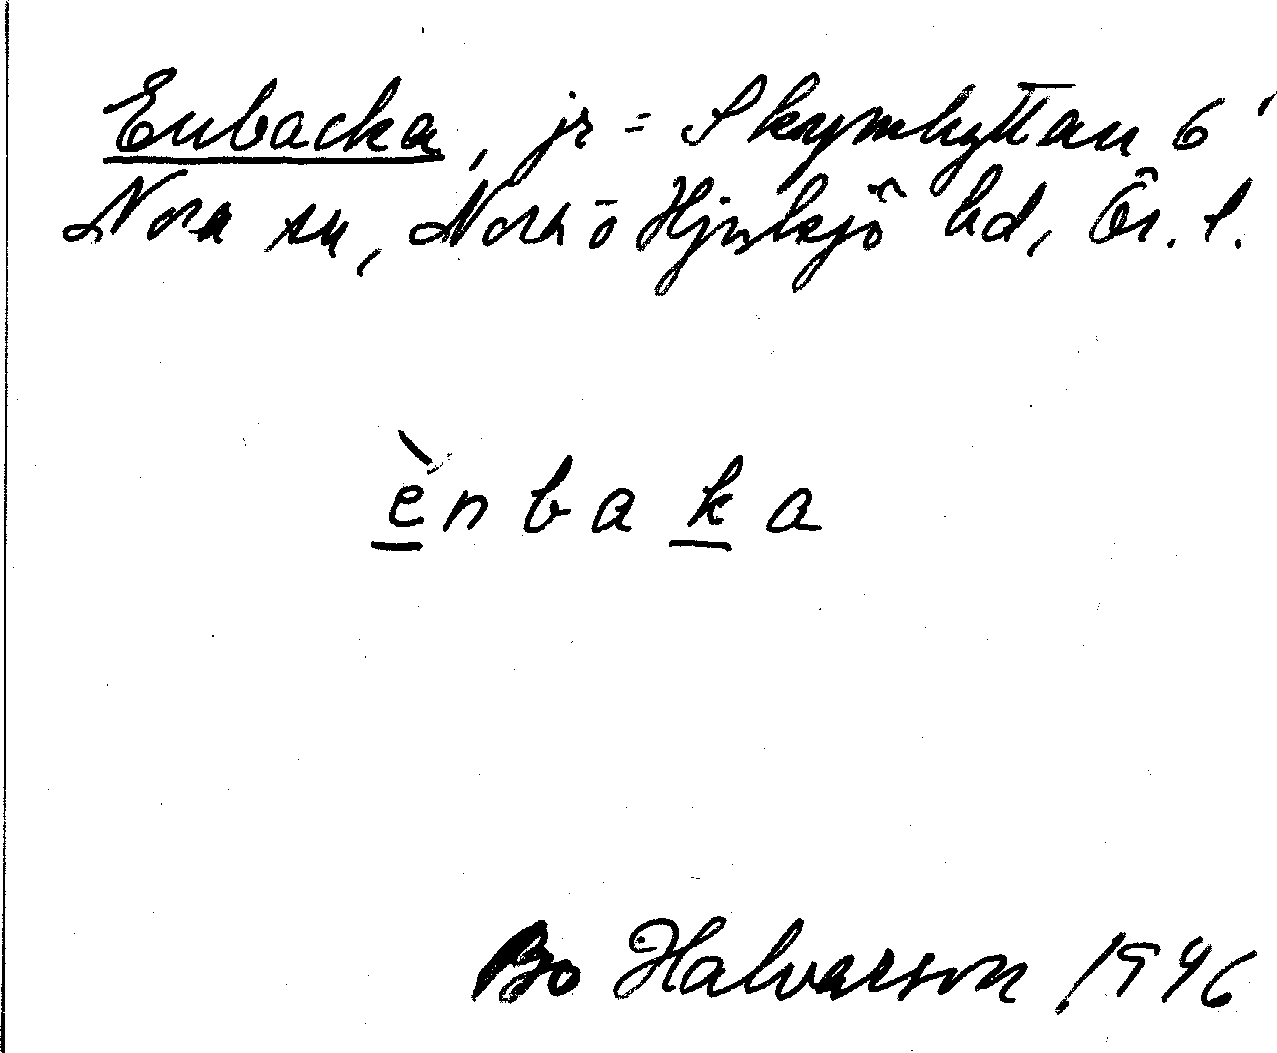 Enbacka, jr = Skrymhyttan 6'
Nora sn, Nora o Hjulsjö hd, Ör. l.
ènbaka
Bo Halvarson 1946